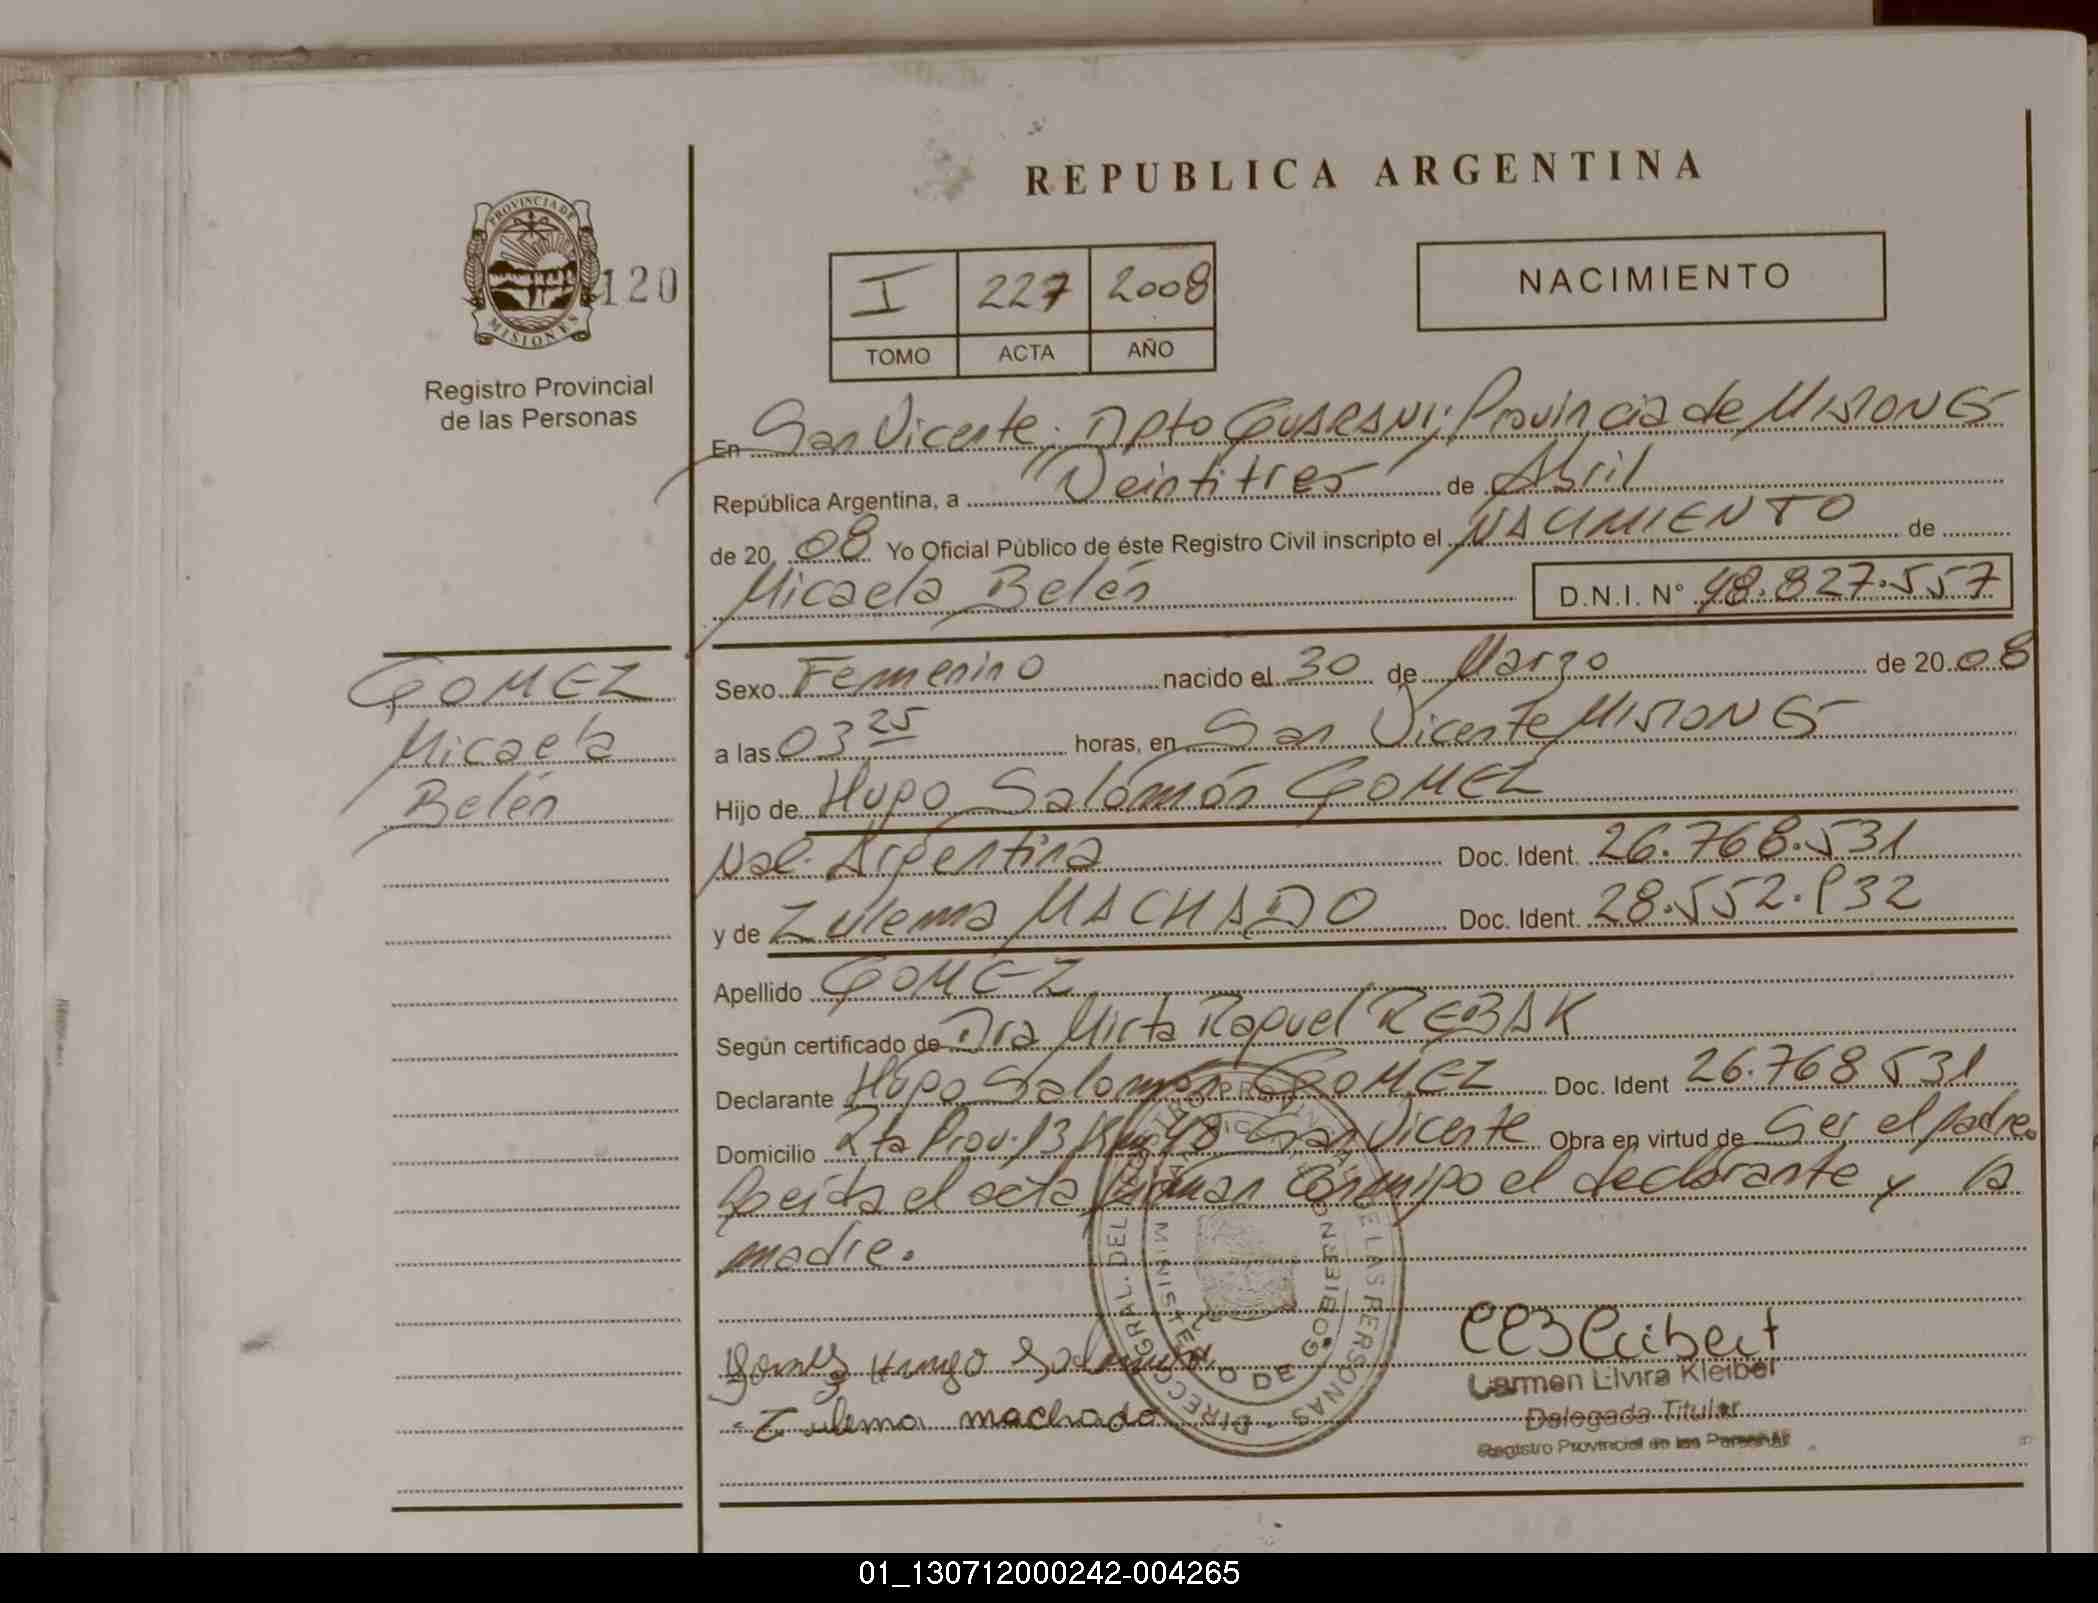 REPUBLICA ARGENTINA
PROVINCIA DE
MISIONES
120
Registro Provincial
de las Personas
I 227 2008
TOMO ACTA AÑO
NACIMIENTO
En San Vicente. Dpto GUARANI; Provincia de MISIONES
República Argentina, a Veintitres de Abril
de 20 08 Yo Oficial Público de éste Registro Civil inscripto el NACIMIENTO de
Micaela Belén D.N.I. N° 48.827.557
GOMEZ
Micaela
Belén
Sexo Femenino nacido el 30 de Marzo de 20 08
a las 03 25 horas, en San Vicente MISIONES
Hijo de Hugo Salomón GOMEZ
Nac. Argentina Doc. Ident. 26.768.531
y de Zulema MACHADO Doc. Ident. 28.552.932
Apellido GOMEZ
Según certificado de Dra Mirta Raquel REBAK
Declarante Hugo Salomón GOMEZ Doc. Ident 26.768.531
Domicilio Rta Prov. 13 Km 48 San Vicente Obra en virtud de Ser el padre.
Leida el acta firman conmigo el declarante y la
madre.
Gomez Hugo Salomon
Zulema machado
DIRECC. GRAL. DEL REGISTRO PROVINCIAL DE LAS PERSONAS
MINISTERIO DE GOBIERNO
Carmen Elvira Kleibel
Delegada Titular
Registro Provincial de las Personas
01_130712000242-004265